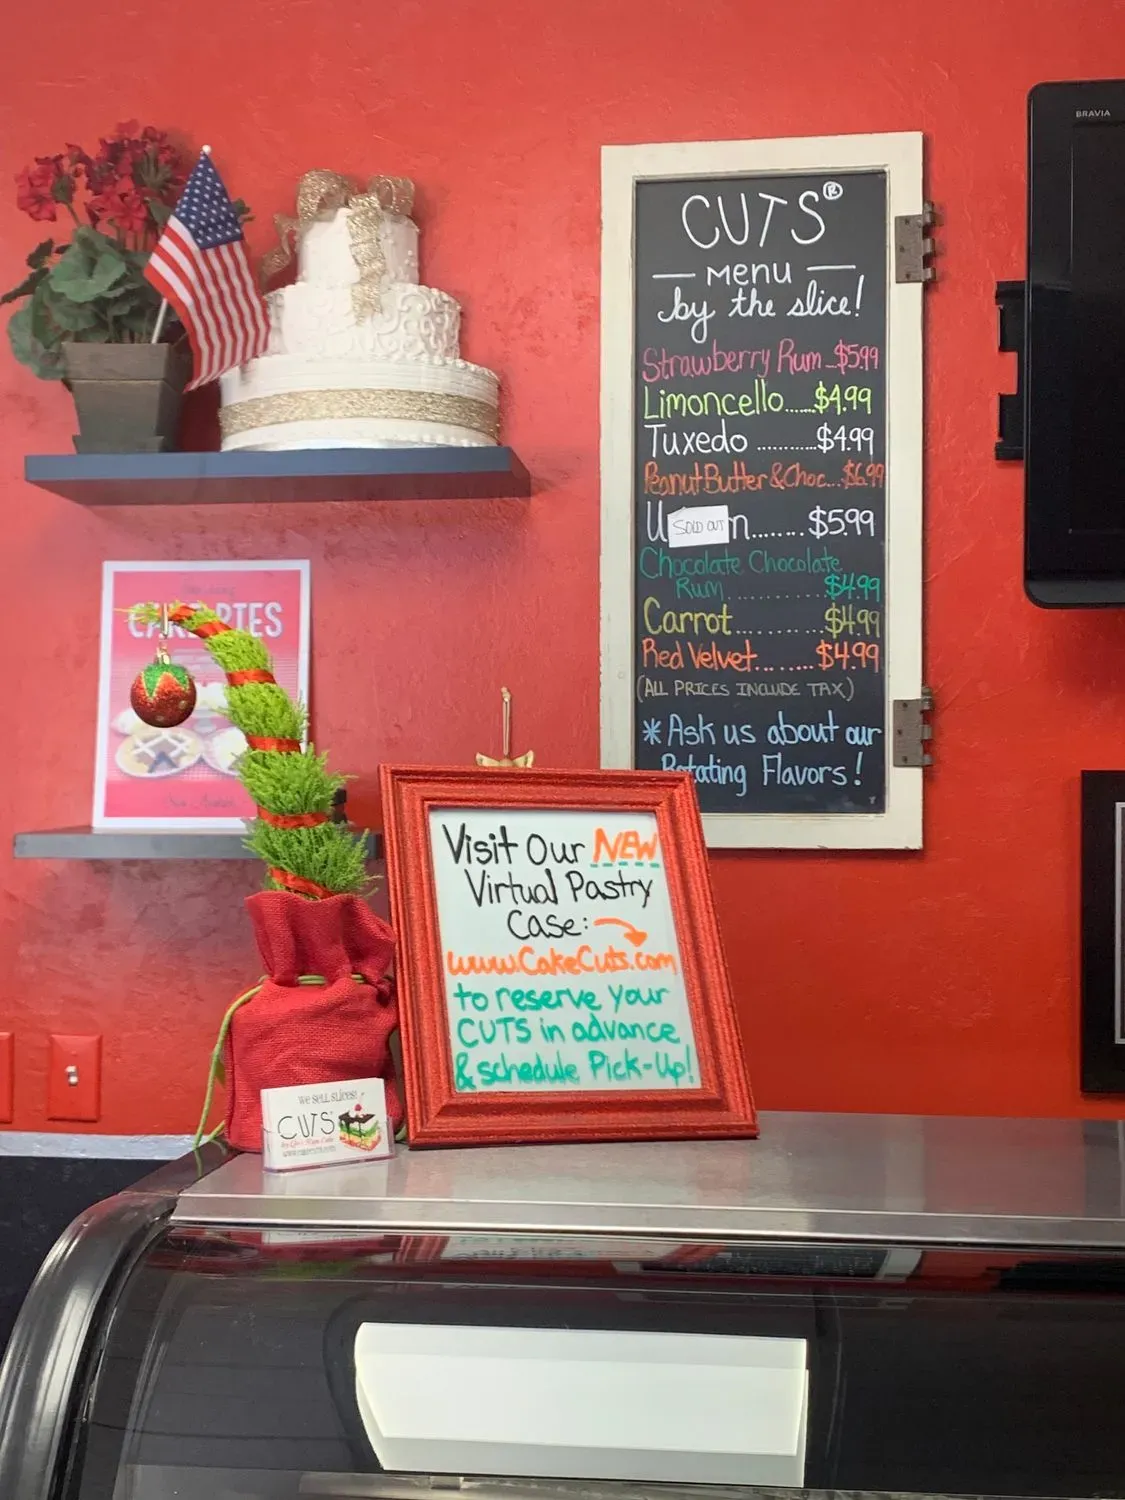 BRAVIA
CUTS®
— Menu —
by the slice!
Strawberry Rum...$5.99
Limoncello......$4.99
Tuxedo ...........$4.99
Peanut Butter & Choc...$6.99
U SOLD OUT n........$5.99
Chocolate Chocolate
Rum............$4.99
Carrot..........$4.99
Red Velvet.........$4.99
(ALL PRICES INCLUDE TAX)
* Ask us about our
Rotating Flavors!
PIES
Visit Our NEW
Virtual Pastry
Case:
www.CakeCuts.com
to reserve your
CUTS in advance
& schedule Pick-Up!
We SELL SLICES!
CUTS